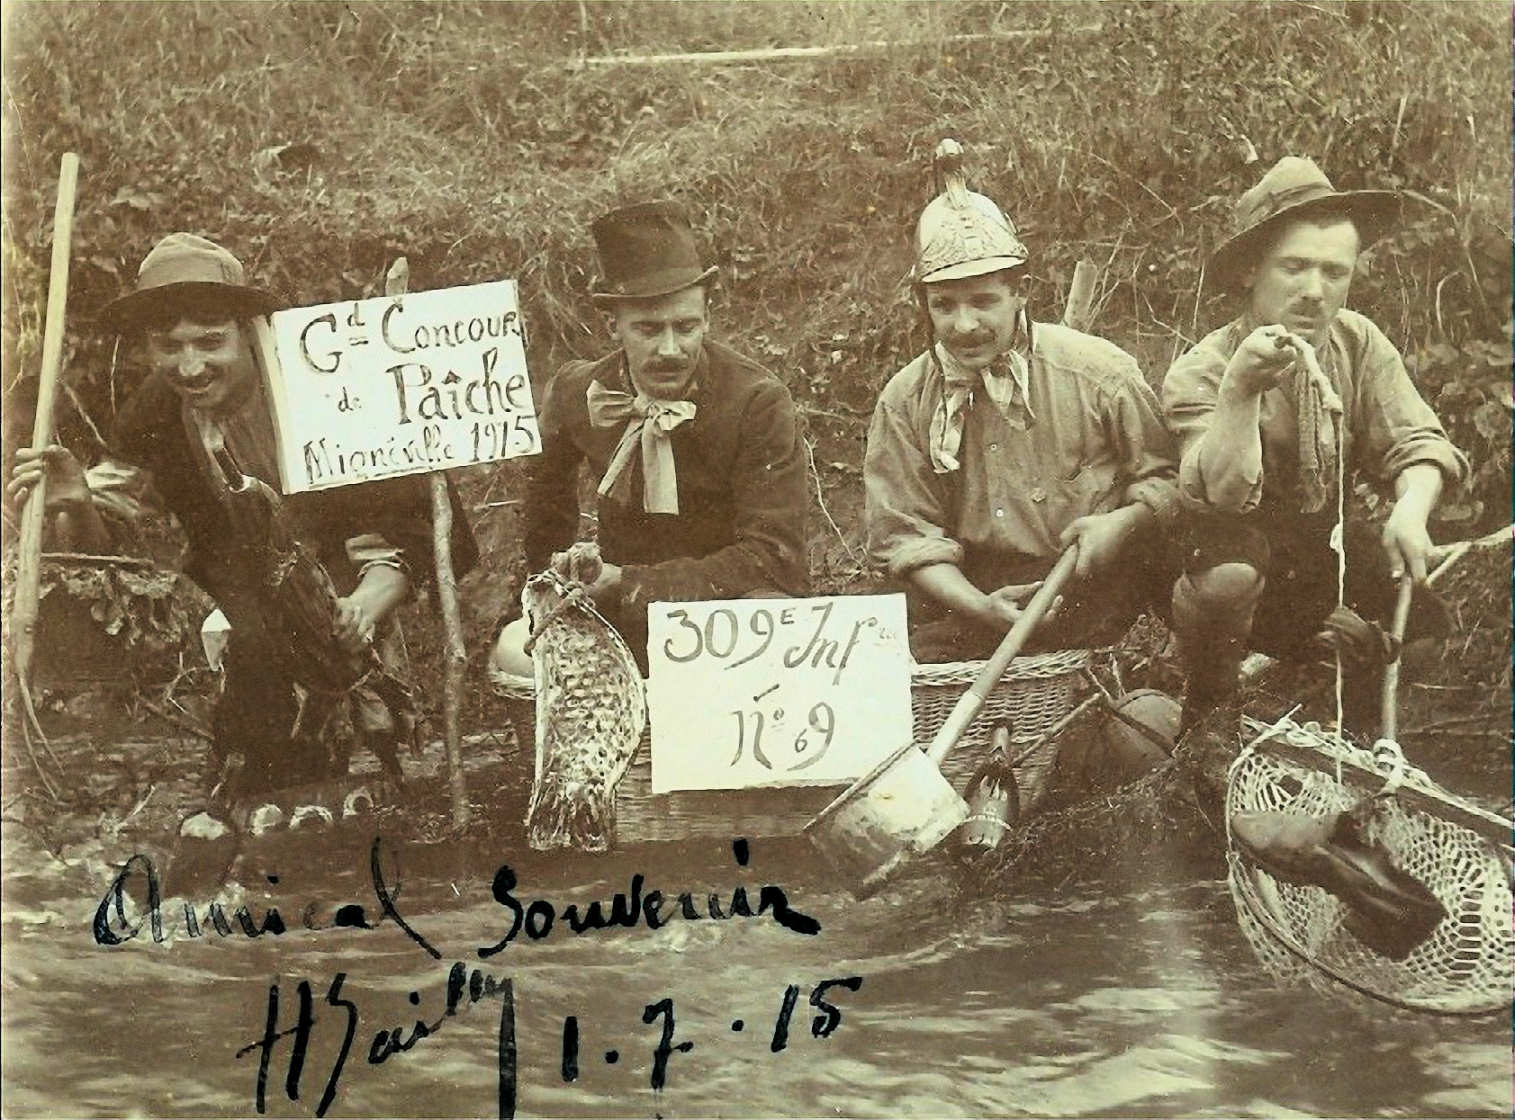 Gd Concours
de Paîche
Mignéville 1915
309E Inf rie
No 69
Amical Souvenir
H Gailly 1.7.15